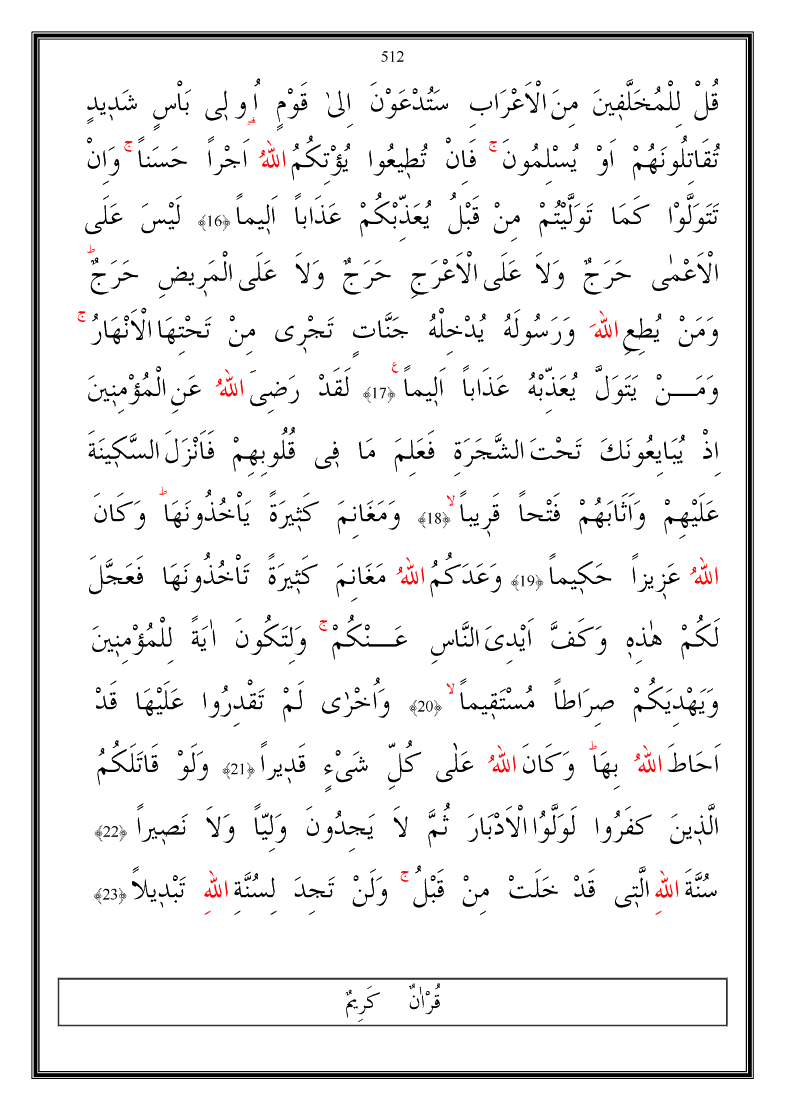 512
قُلْ لِلْمُخَلَّفٖينَ مِنَ الْاَعْرَابِ سَتُدْعَوْنَ اِلٰى قَوْمٍ اُو۬لٖى بَاْسٍ شَدٖيدٍ
تُقَاتِلُونَهُمْ اَوْ يُسْلِمُونَۚ فَاِنْ تُطٖيعُوا يُؤْتِكُمُ اللّٰهُ اَجْراً حَسَناًۚ وَاِنْ
تَتَوَلَّوْا كَمَا تَوَلَّيْتُمْ مِنْ قَبْلُ يُعَذِّبْكُمْ عَذَاباً اَلٖيماً ﴿16﴾ لَيْسَ عَلَى
الْاَعْمٰى حَرَجٌ وَلَا عَلَى الْاَعْرَجِ حَرَجٌ وَلَا عَلَى الْمَرٖيضِ حَرَجٌؕ
وَمَنْ يُطِعِ اللّٰهَ وَرَسُولَهُ يُدْخِلْهُ جَنَّاتٍ تَجْرٖى مِنْ تَحْتِهَا الْاَنْهَارُۚ
وَمَـــنْ يَتَوَلَّ يُعَذِّبْهُ عَذَاباً اَلٖيماًࣖ ﴿17﴾ لَقَدْ رَضِىَ اللّٰهُ عَنِ الْمُؤْمِنٖينَ
اِذْ يُبَايِعُونَكَ تَحْتَ الشَّجَرَةِ فَعَلِمَ مَا فٖى قُلُوبِهِمْ فَاَنْزَلَ السَّكٖينَةَ
عَلَيْهِمْ وَاَثَابَهُمْ فَتْحاً قَرٖيباًۙ ﴿18﴾ وَمَغَانِمَ كَثٖيرَةً يَاْخُذُونَهَاؕ وَكَانَ
اللّٰهُ عَزٖيزاً حَكٖيماً ﴿19﴾ وَعَدَكُمُ اللّٰهُ مَغَانِمَ كَثٖيرَةً تَاْخُذُونَهَا فَعَجَّلَ
لَكُمْ هٰذِهٖ وَكَفَّ اَيْدِىَ النَّاسِ عَـــنْكُمْۚ وَلِتَكُونَ اٰيَةً لِلْمُؤْمِنٖينَ
وَيَهْدِيَكُمْ صِرَاطاً مُسْتَقٖيماًۙ ﴿20﴾ وَاُخْرٰى لَمْ تَقْدِرُوا عَلَيْهَا قَدْ
اَحَاطَ اللّٰهُ بِهَاؕ وَكَانَ اللّٰهُ عَلٰى كُلِّ شَىْءٍ قَدٖيراً ﴿21﴾ وَلَوْ قَاتَلَكُمُ
الَّذٖينَ كَفَرُوا لَوَلَّوُا الْاَدْبَارَ ثُمَّ لَا يَجِدُونَ وَلِيّاً وَلَا نَصٖيراً ﴿22﴾
سُنَّةَ اللّٰهِ الَّتٖى قَدْ خَلَتْ مِنْ قَبْلُۚ وَلَنْ تَجِدَ لِسُنَّةِ اللّٰهِ تَبْدٖيلاً ﴿23﴾
قُرْاٰنٌ كَرٖيمٌ